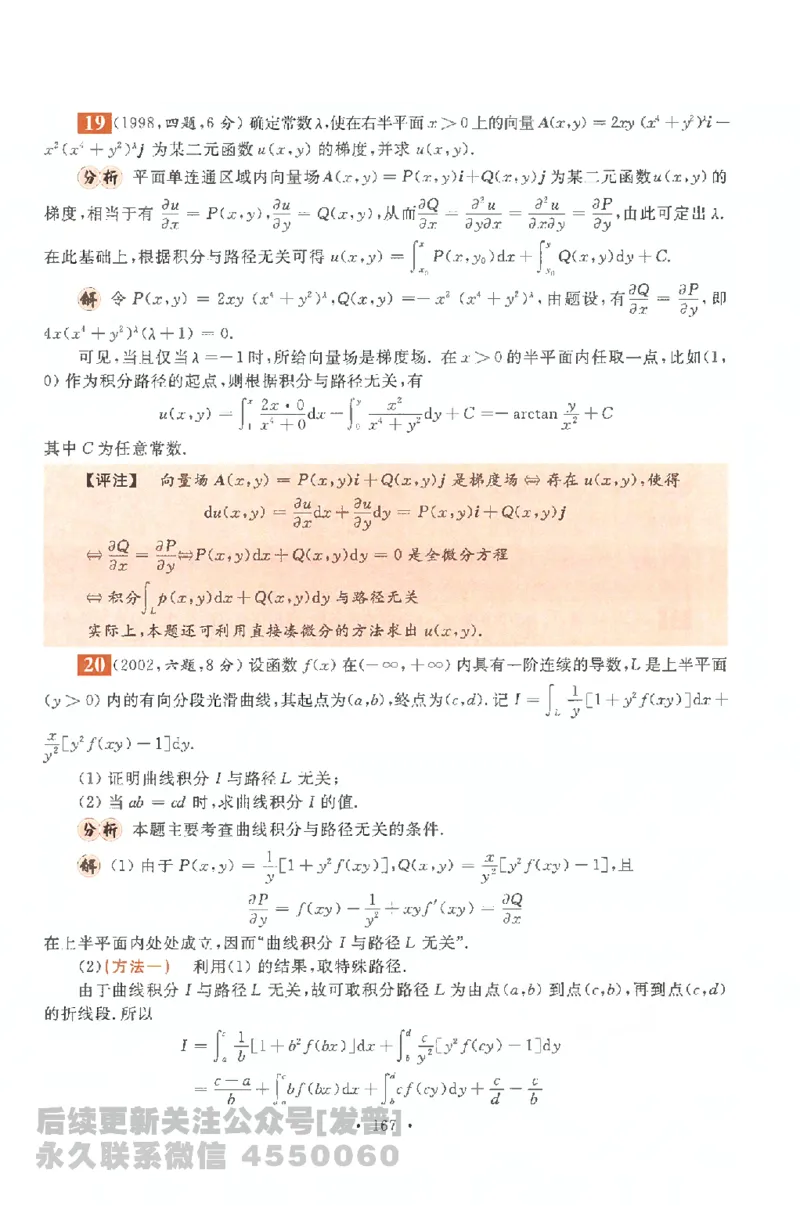 19 (1998,四题,6 分) 确定常数λ,使在右半平面 x > 0 上的向量 A(x,y) = 2xy (x⁴ + y²)^λ i −
x²(x⁴ + y²)^λ j 为某二元函数 u(x,y) 的梯度,并求 u(x,y).
分析 平面单连通区域内向量场A(x,y) = P(x,y)i+Q(x,y)j 为某二元函数u(x,y) 的
梯度,相当于有 ∂u/∂x = P(x,y), ∂u/∂y = Q(x,y),从而 ∂Q/∂x = ∂²u/∂y∂x = ∂²u/∂x∂y = ∂P/∂y,由此可定出 λ.
在此基础上,根据积分与路径无关可得 u(x,y) = ∫_{x₀}^{x} P(x,y₀)dx + ∫_{y₀}^{y} Q(x,y)dy + C.
解 令 P(x,y) = 2xy (x⁴ + y²)^λ,Q(x,y) =− x² (x⁴ + y²)^λ,由题设,有 ∂Q/∂x = ∂P/∂y,即
4x(x⁴ + y²)^λ(λ+1) = 0.
可见,当且仅当 λ =−1 时,所给向量场是梯度场. 在 x > 0 的半平面内任取一点,比如(1,
0) 作为积分路径的起点,则根据积分与路径无关,有
u(x,y) = ∫_1^x (2x · 0)/(x⁴ + 0) dx − ∫_0^y x²/(x⁴ + y²) dy + C =− arctan y/x² + C
其中 C 为任意常数.
【评注】 向量场 A(x,y) = P(x,y)i + Q(x,y)j 是梯度场 ⇔ 存在 u(x,y),使得
du(x,y) = ∂u/∂x dx + ∂u/∂y dy = P(x,y)i + Q(x,y)j
⇔ ∂Q/∂x = ∂P/∂y ⇔ P(x,y)dx + Q(x,y)dy = 0 是全微分方程
⇔ 积分∫_L p(x,y)dx + Q(x,y)dy 与路径无关
实际上,本题还可利用直接凑微分的方法求出 u(x,y).
20 (2002,六题,8 分) 设函数 f(x) 在(−∞,+∞) 内具有一阶连续的导数,L 是上半平面
(y > 0) 内的有向分段光滑曲线,其起点为(a,b),终点为(c,d). 记 I = ∫_L 1/y [1 + y² f(xy)]dx +
x/y² [y² f(xy) − 1]dy.
(1) 证明曲线积分 I 与路径 L 无关;
(2) 当 ab = cd 时,求曲线积分 I 的值.
分析 本题主要考查曲线积分与路径无关的条件.
解 (1) 由于 P(x,y) = 1/y [1 + y² f(xy)],Q(x,y) = x/y² [y² f(xy) − 1],且
∂P/∂y = f(xy) − 1/y² + xyf′(xy) = ∂Q/∂x
在上半平面内处处成立,因而“曲线积分 I 与路径 L 无关”.
(2)(方法一) 利用(1) 的结果,取特殊路径.
由于曲线积分 I 与路径 L 无关,故可取积分路径 L 为由点(a,b) 到点(c,b),再到点(c,d)
的折线段. 所以
I = ∫_a^c 1/b [1 + b² f(bx)]dx + ∫_b^d c/y² [y² f(cy) − 1]dy
= (c − a)/b + ∫_a^c bf(bx)dx + ∫_b^d cf(cy)dy + c/d − c/b
后续更新关注公众号[发普]
· 167 ·
永久联系微信 4550060